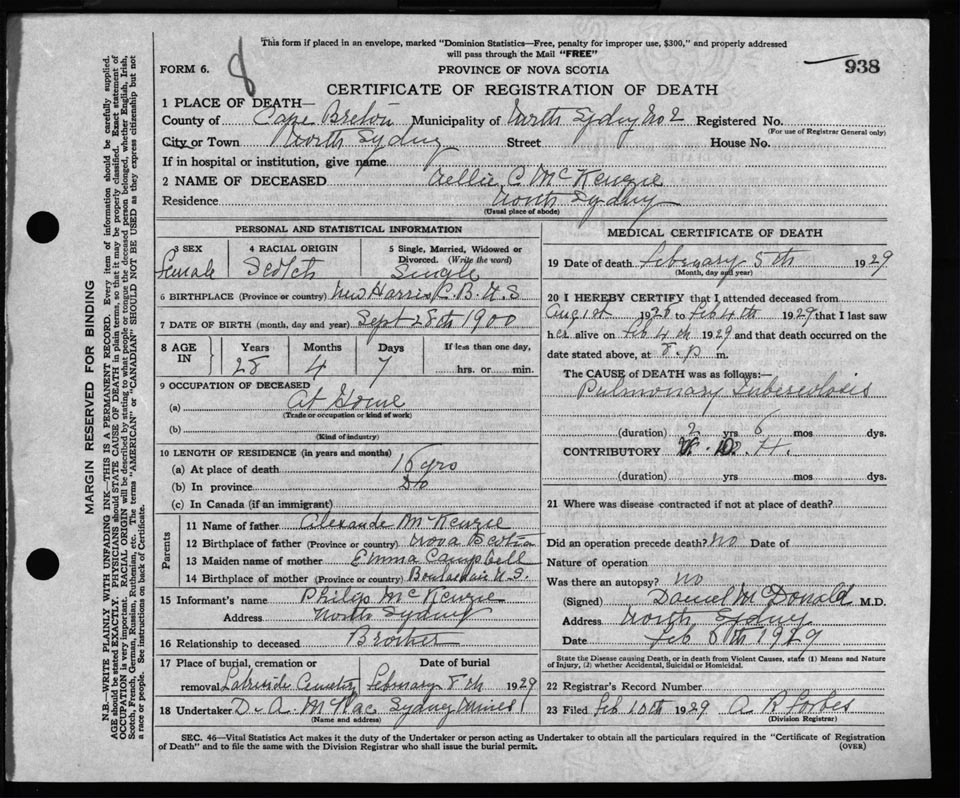 This form if placed in an envelope, marked "Dominion Statistics—Free, penalty for improper use, $300," and properly addressed
will pass through the Mail "FREE"
8
FORM 6.
PROVINCE OF NOVA SCOTIA
938
CERTIFICATE OF REGISTRATION OF DEATH
1 PLACE OF DEATH—
County of Cape Breton Municipality of North Sydney No 2 Registered No.
(For use of Registrar General only)
City or Town North Sydney Street House No.
If in hospital or institution, give name
2 NAME OF DECEASED Nellie C McKenzie
Residence North Sydney
(Usual place of abode)
PERSONAL AND STATISTICAL INFORMATION
3 SEX 4 RACIAL ORIGIN 5 Single, Married, Widowed or
Divorced. (Write the word)
Female Scotch Single
6 BIRTHPLACE (Province or country) New Harris C.B. N.S
7 DATE OF BIRTH (month, day and year) Sept 28th 1900
8 AGE IN Years Months Days If less than one day,
28 4 7 hrs. or min.
9 OCCUPATION OF DECEASED
(a) At Home
(Trade or occupation or kind of work)
(b)
(Kind of industry)
10 LENGTH OF RESIDENCE (in years and months)
(a) At place of death 16 yrs
(b) In province Do
(c) In Canada (if an immigrant)
Parents
11 Name of father Alexande McKenzie
12 Birthplace of father (Province or country) Nova Scotia
13 Maiden name of mother Emma Campbell
14 Birthplace of mother (Province or country) Boularderie N.S.
15 Informant's name Philip McKenzie
Address North Sydney
16 Relationship to deceased Brother
17 Place of burial, cremation or Date of burial
removal Lakeside Cemetery February 8th 1929
18 Undertaker D. A. McRae Sydney Mines
(Name and address)
MEDICAL CERTIFICATE OF DEATH
19 Date of death February 5th 1929
(Month, day and year)
20 I HEREBY CERTIFY that I attended deceased from
Aug 1st 1926 to Feb 4th 1929 that I last saw
her alive on Feb 4th 1929 and that death occurred on the
date stated above, at 8.p m.
The CAUSE of DEATH was as follows:—
Pulmonary Tuberculosis
(duration) 2 yrs 6 mos dys.
CONTRIBUTORY
(duration) yrs mos dys.
21 Where was disease contracted if not at place of death?
Did an operation precede death? No Date of
Nature of operation
Was there an autopsy? no
(Signed) Daniel McDonald M.D.
Address North Sydney
Date Feb 1929
State the Disease causing Death, or in death from Violent Causes, state (1) Means and Nature
of Injury, (2) whether Accidental, Suicidal or Homicidal.
22 Registrar's Record Number
23 Filed Feb 10th 1929 A R Forbes
(Division Registrar)
SEC. 46—Vital Statistics Act makes it the duty of the Undertaker or person acting as Undertaker to obtain all the particulars required in the "Certificate of Registration
of Death" and to file the same with the Division Registrar who shall issue the burial permit. (OVER)
MARGIN RESERVED FOR BINDING
N.B.—WRITE PLAINLY WITH UNFADING INK—THIS IS A PERMANENT RECORD. Every item of information should be carefully supplied.
AGE should be stated EXACTLY. PHYSICIANS should STATE CAUSE OF DEATH in plain terms, so that it may be properly classified. Exact statement of
OCCUPATION is very important. RACIAL ORIGIN will be described by stating to what people or tongue the deceased person belonged, whether English, Irish,
Scotch, French, German, Russian, Ruthenian, etc. The terms "AMERICAN" or "CANADIAN" SHOULD NOT BE USED as they express citizenship but not
a race or people. See instructions on back of Certificate.